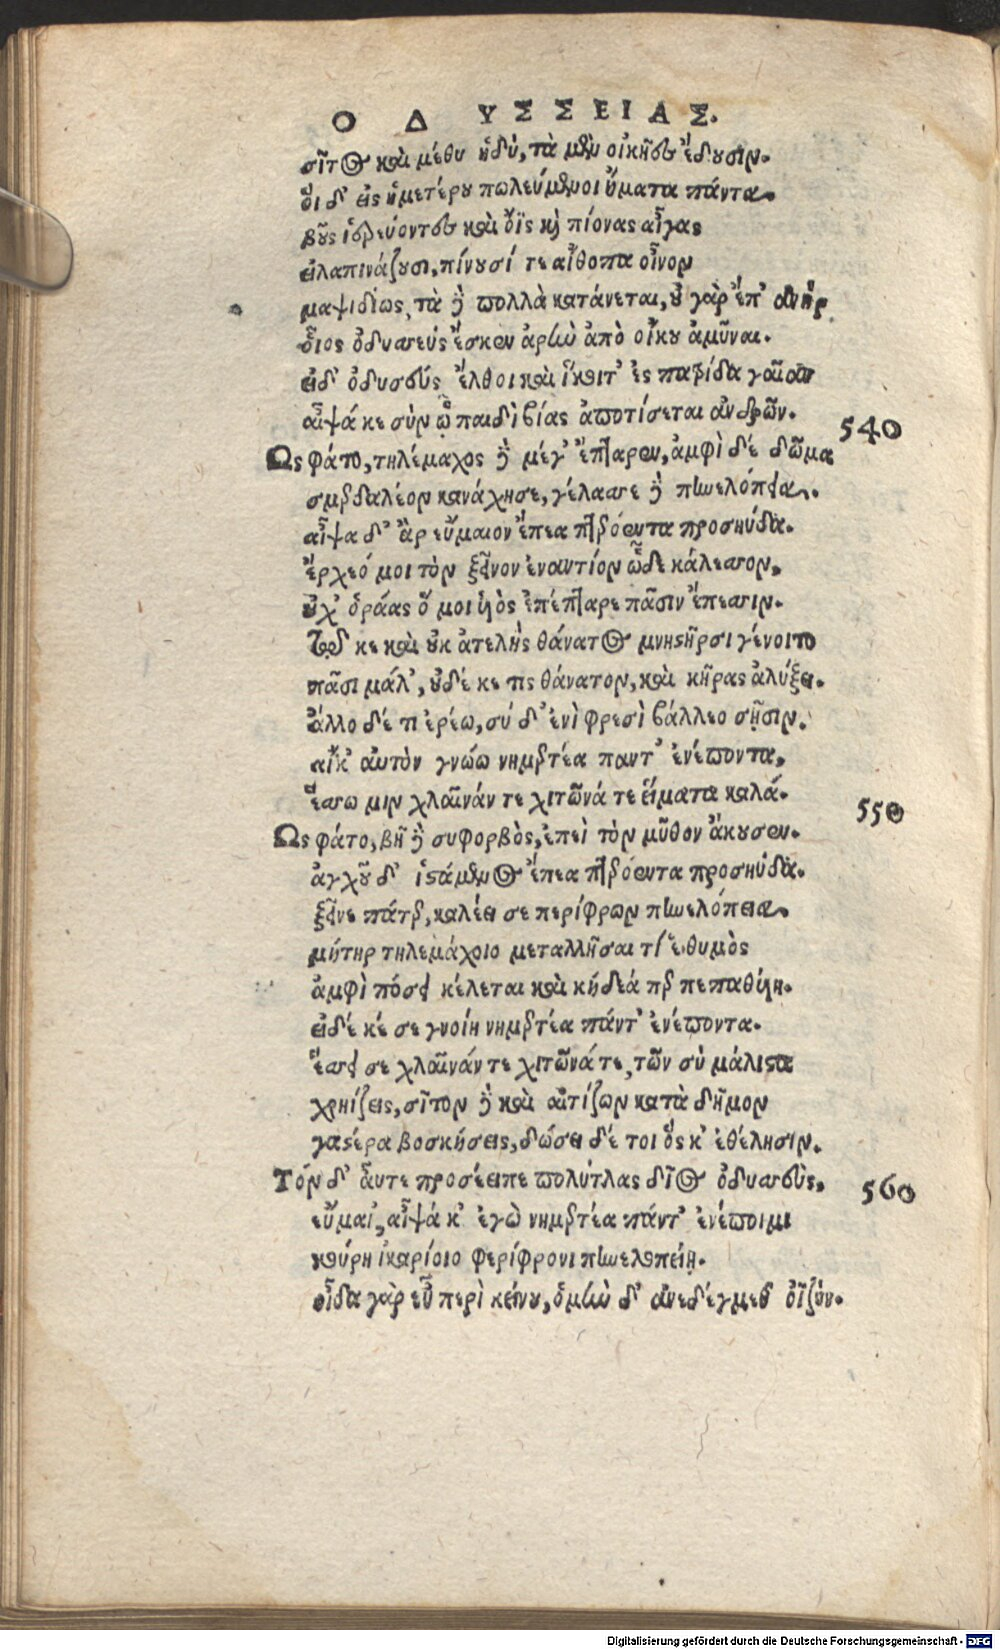 ΟΔΥΣΣΕΙΑΣ.
σῖτος καὶ μέθυ ἡδύ, τὰ μὲν οἰκῆες ἔδουσιν.
ὅι δ' εἰς ἡμετέρου πωλεύμενοι ἤματα πάντα.
βοῦς ἱερεύοντες καὶ ὄϊς καὶ πίονας αἶγας
εἰλαπινάζουσι, πίνουσί τε αἴθοπα οἶνον
μαψιδίως, τὰ δὲ πολλὰ κατάνεται, οὐ γὰρ ἔπ' ἀνὴρ
ὅιος ὀδυσσεὺς ἔσκεν ἀρὴν ἀπὸ οἴκου ἀμῦναι.
εἰ δ' ὀδυσσεύς ἔλθοι καὶ ἵκοιτ' ἐς πατρίδα γαῖαν
αἶψά κε σὺν ᾧ παιδὶ βίας ἀποτίσεται ἀνδρῶν.
540
Ως φάτο, τηλέμαχος δὲ μέγ' ἔπταρεν, ἀμφὶ δέ δῶμα
σμερδαλέον κανάχησε, γέλασσε δὲ πηνελόπεια.
αἶψα δ' ἂρ εὔμαιον ἔπεα πτερόεντα προσηύδα.
ἔρχεό μοι τὸν ξεῖνον ἐναντίον ὧδε κάλεσσον,
οὐχ ὁράας ὅ μοι υἱὸς ἐπέπταρε πᾶσιν ἔπεσσιν.
τῷ κε καὶ οὐκ ἀτελὴς θάνατος μνηστῆρσι γένοιτο
πᾶσι μάλ', οὐδέ κε τις θάνατον, καὶ κῆρας ἀλύξει.
ἄλλο δέ τι ἐρέω, σύ δ' ἐνὶ φρεσὶ βάλλεο σῇσιν.
αἴκ' ἀυτὸν γνώω νημερτέα παντ' ἐνέποντα,
ἕσσω μιν χλαῖνάν τε χιτῶνά τε εἵματα καλά.
550
Ως φάτο, βῆ δὲ συφορβὸς, ἐπεὶ τὸν μῦθον ἄκουσεν.
ἀγχοῦ δ' ἱστάμενος ἔπεα πτερόεντα προσηύδα.
ξεῖνε πάτερ, καλέει σε περίφρων πηνελόπεια,
μήτηρ τηλεμάχοιο μεταλλῆσαι τί ἑ θυμὸς
ἀμφὶ πόσει κέλεται καὶ κήδεά περ πεπαθυίῃ.
εἰ δέ κέ σε γνοίη νημερτέα πάντ' ἐνέποντα.
ἕσσει σε χλαῖνάν τε χιτῶνά τε, τῶν σὺ μάλιστα
χρηίζεις, σῖτον δὲ καὶ αἰτίζων κατὰ δῆμον
γαστέρα βοσκήσεις, δώσει δέ τοι ὅς κ' ἐθέλησιν.
Τόν δ' ἆυτε προσέειπε πολύτλας δῖος ὀδυσσεὺς,
560
εὔμαι', αἶψά κ' ἐγὼ νημερτέα πάντ' ἐνέποιμι
κούρη ἰκαρίοιο φερίφρονι πηνελοπείῃ.
οἶδα γὰρ εὖ περὶ κείνου, ὁμὴν δ' ἀνεδέγμεθ' ὀϊζύν.
Digitalisierung gefördert durch die Deutsche Forschungsgemeinschaft - DFG